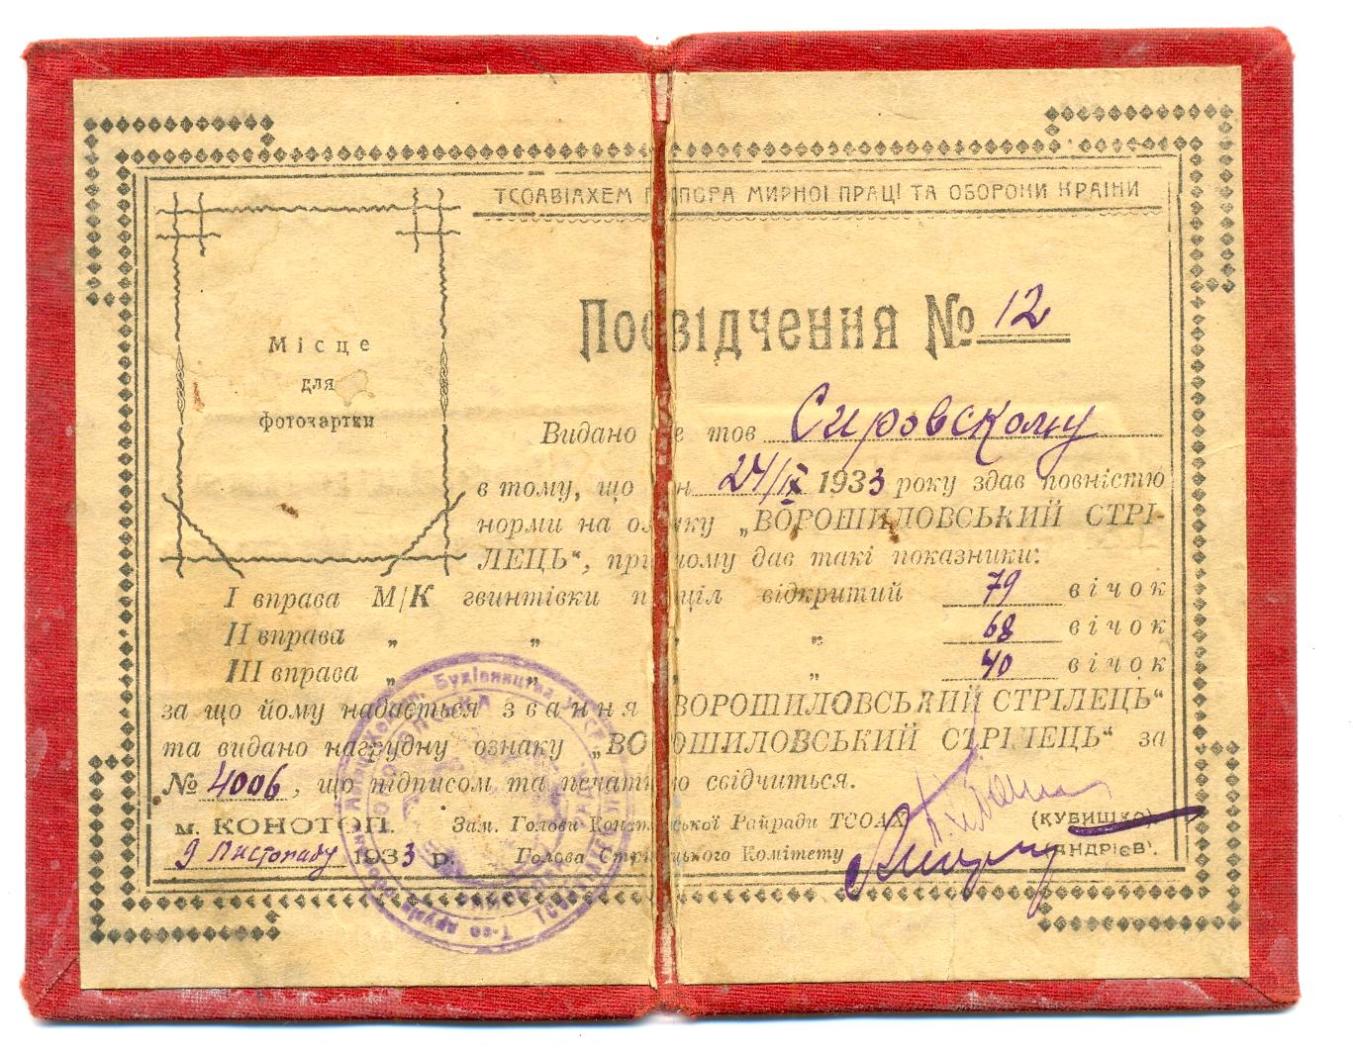 ТСОАВІАХЕМ ПІДПОРА МИРНОЇ ПРАЦІ ТА ОБОРОНИ КРАЇНИ
Місце
для
фотокартки
Посвідчення № 12
Видано це тов Сировскому
в тому, що він 24/IX 1933 року здав повністю
норми на ознаку „ВОРОШИЛОВСЬКИЙ СТРІ-
ЛЕЦЬ“, при чому дав такі показники:
I вправа М/К гвинтівки приціл відкритий 79 вічок
II вправа „ „ „ „ 68 вічок
III вправа „ „ „ „ 40 вічок
за що йому надається звання „ВОРОШИЛОВСЬКИЙ СТРІЛЕЦЬ“
та видано нагрудну ознаку „ВОРОШИЛОВСЬКИЙ СТРІЛЕЦЬ“ за
№ 4006, що підписом та печаткою свідчиться.
м. КОНОТОП. Зам. Голови Конотопської Райради ТСОАХ (КУБИШКО)
9 Листопаду 1933 р. Голова Стрілецького Комітету (АНДРІЄВ).
Будівництва УСРР